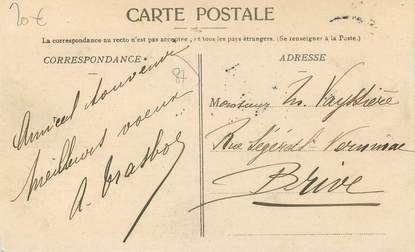 20€
CARTE POSTALE
La correspondance au recto n'est pas acceptée par tous les pays étrangers. (Se renseigner à la Poste.)
CORRESPONDANCE
87
Amical souvenir
meilleurs voeux
A.
ADRESSE
Monsieur M. Vayssière
Rue Ségéral-Verninac
Brive